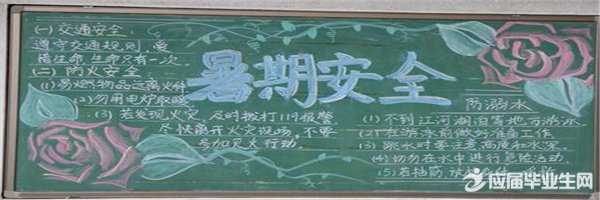 (一)交通安全:
遵守交通规则,爱
惜生命,生命只有一次。
(二)防火安全
(1)易燃物品远离火件
(2)勿用电炉取暖
(3)若发现火灾,及时拨打119报警
尽快离开火灾现场,不要
参加灭火行动。
暑期安全
防溺水
(1)不到江河湖泊等地方游泳
(2)在游泳前做好准备工作
(3)跳水时要注意高度和水深
(4)切勿在水中进行危险活动
(5)若抽筋
应届毕业生网